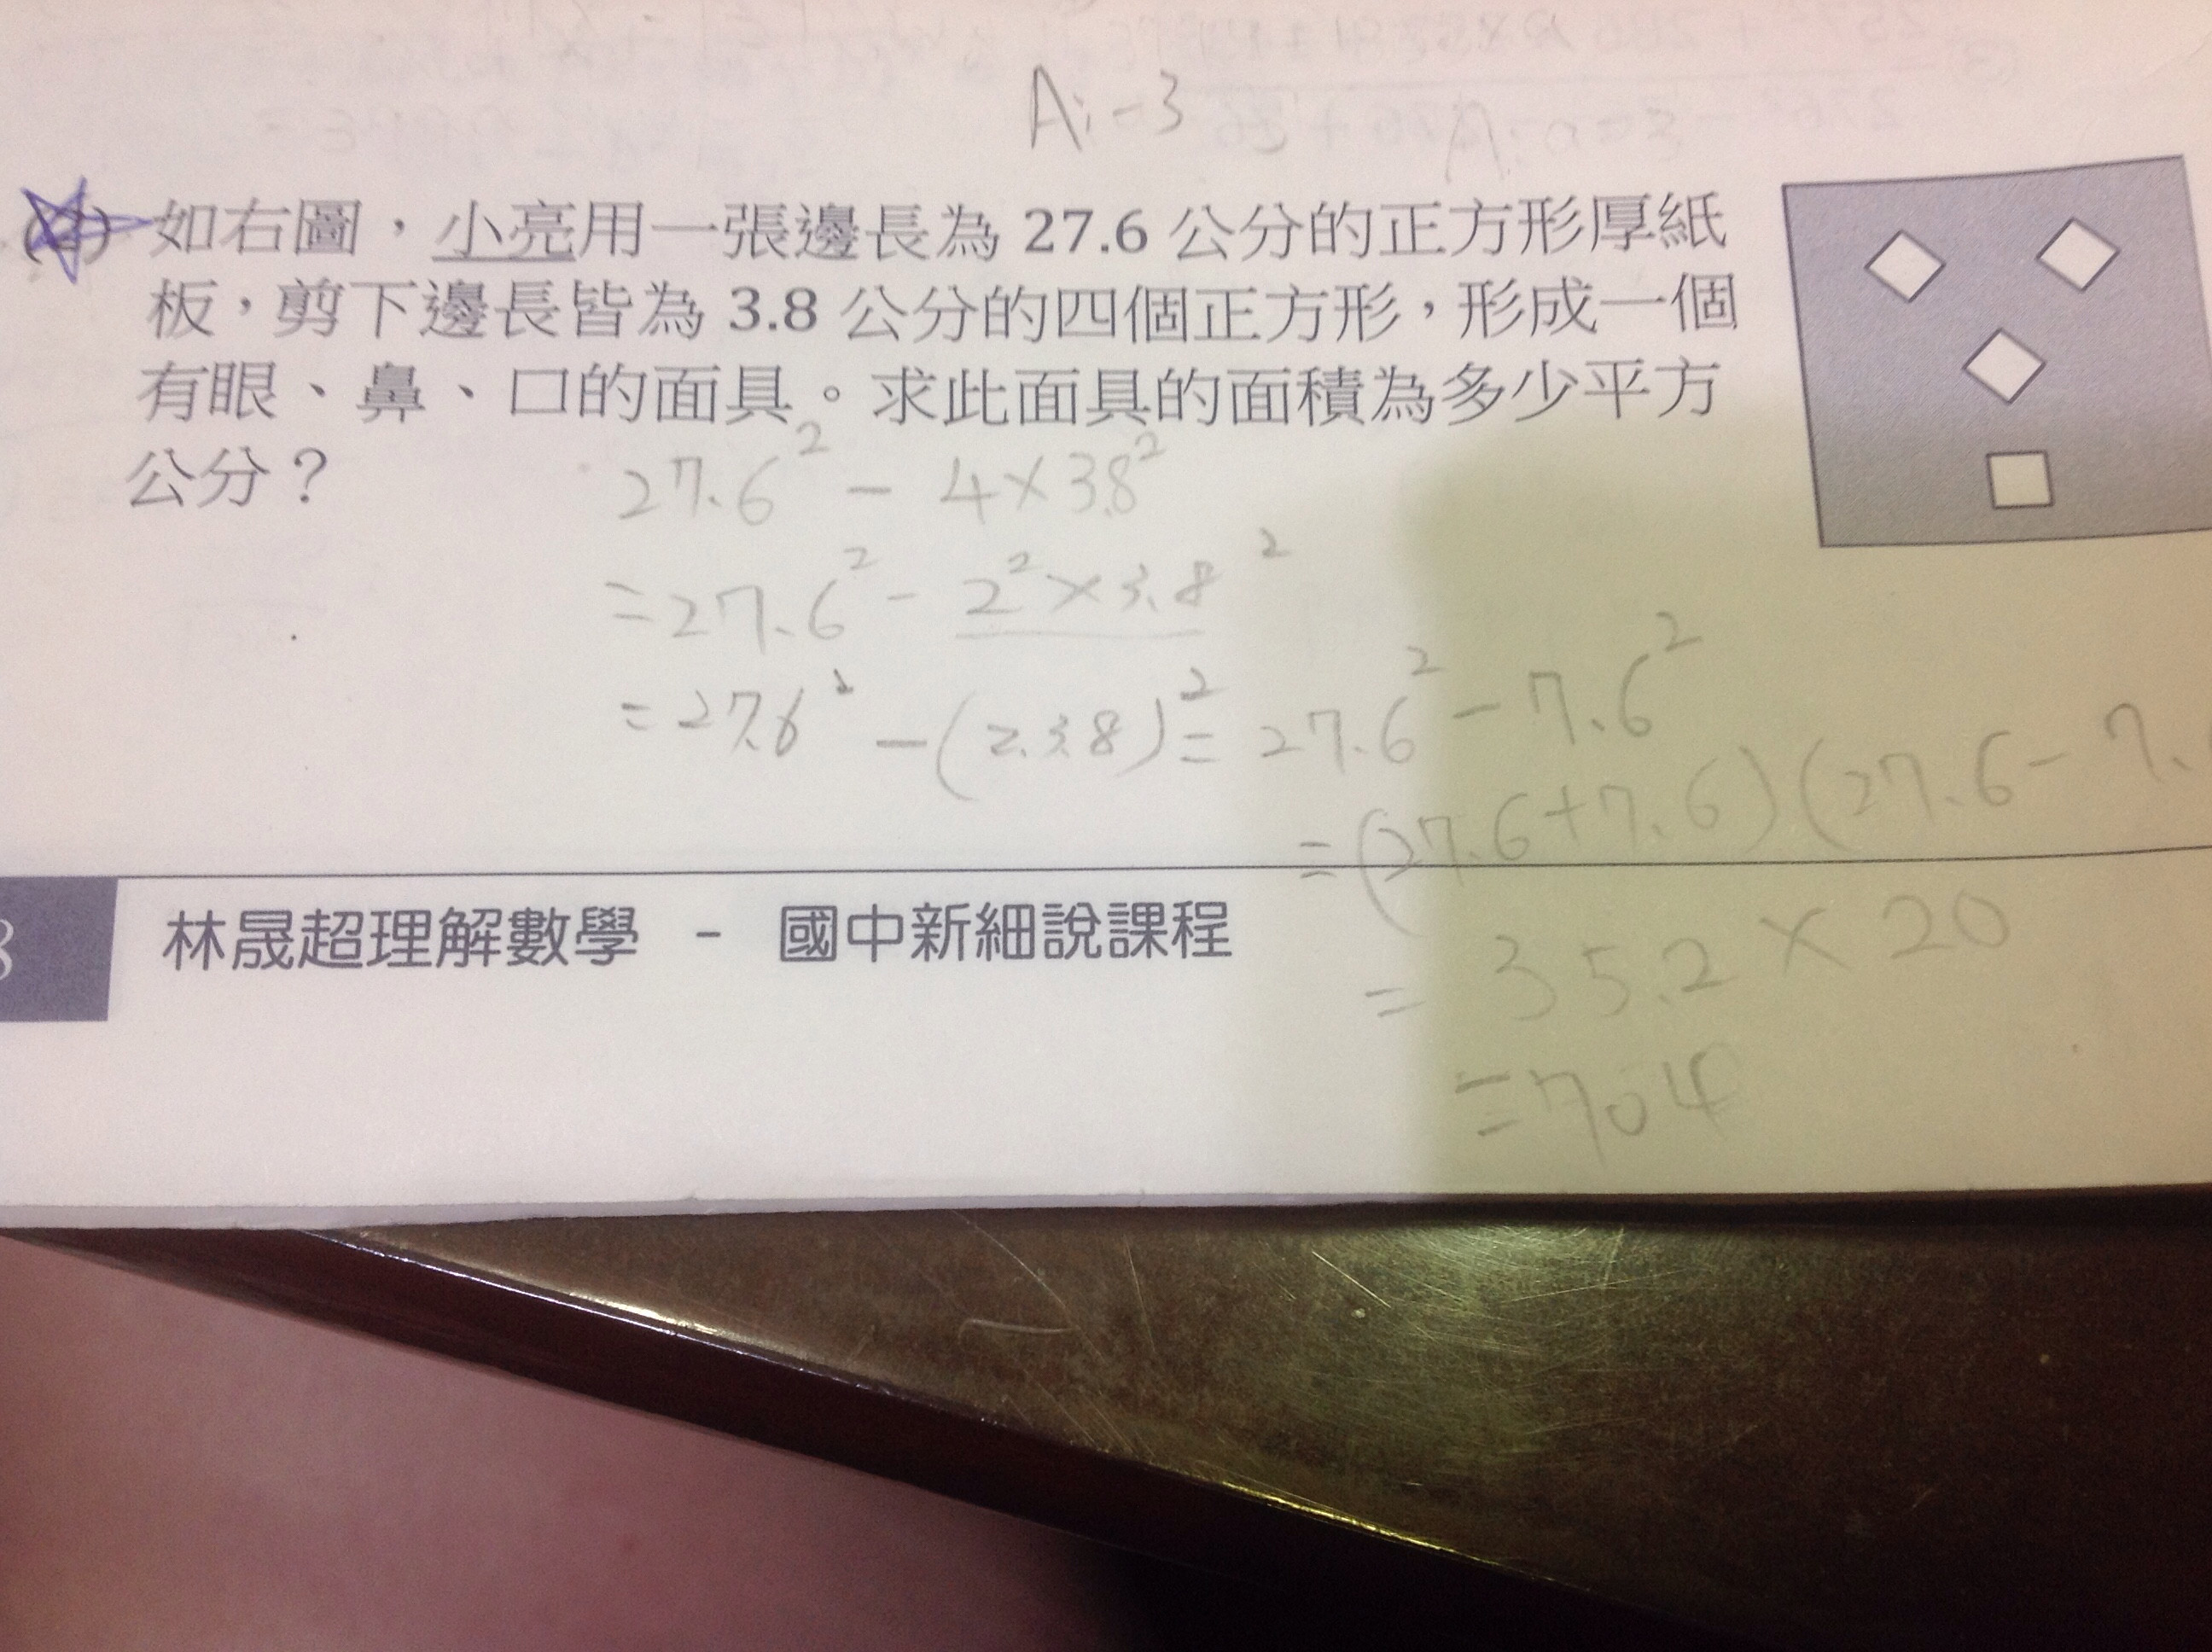 A:-3
如右圖，小亮用一張邊長為 27.6 公分的正方形厚紙
板，剪下邊長皆為 3.8 公分的四個正方形，形成一個
有眼、鼻、口的面具。求此面具的面積為多少平方
公分？
27.6² - 4×3.8²
=27.6² - 2²×3.8²
=27.6² -(2.3.8)²= 27.6² - 7.6²
=(27.6+7.6)(27.6-7.
= 35.2 × 20
=704
林晟超理解數學 - 國中新細說課程